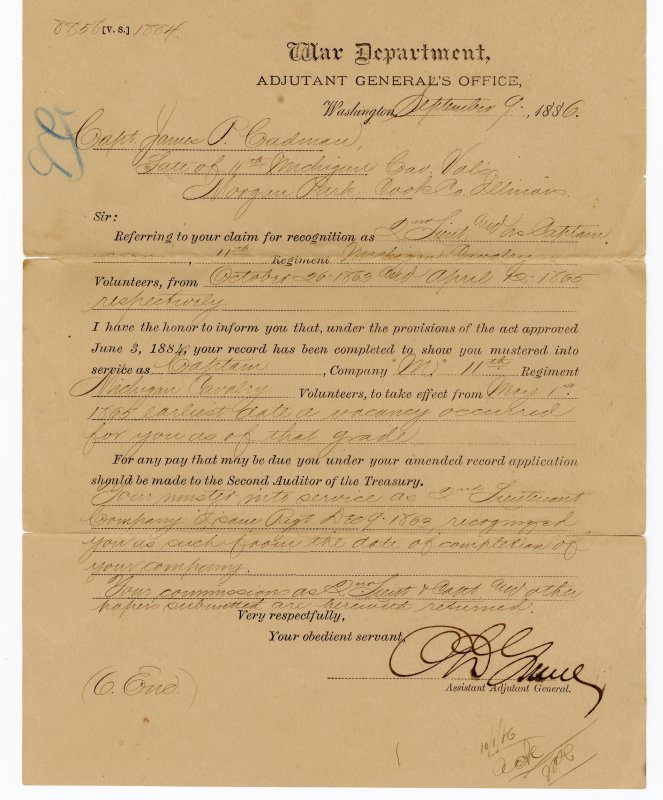 8856 [V. S.] 1884.
War Department,
ADJUTANT GENERAL'S OFFICE,
Washington, September 9, 1886.
Capt. James P. Cadman,
Late of 11th Michigan Cav. Vols.
Morgan Park, Cook Co. Illinois.
Sir:
Referring to your claim for recognition as 2nd Lieut and as Captain
, 11th Regiment Michigan Cavalry
Volunteers, from October 26 1863 and April 12 1865
respectively
I have the honor to inform you that, under the provisions of the act approved
June 3, 1884, your record has been completed to show you mustered into
service as Captain, Company "M," 11th Regiment
Michigan Cavalry Volunteers, to take effect from May 1st
1865 earliest date a vacancy occurred
for you as of that grade
For any pay that may be due you under your amended record application
should be made to the Second Auditor of the Treasury.
Your muster into service as 2nd Lieutenant
Company same Regt Dec 9 1863, recognized
you as such from the date of completion of
your company.
Your commissions as 2nd Lieut & Capt and other
papers submitted are herewith returned.
Very respectfully,
Your obedient servant,
Assistant Adjutant General.
(6. Enc.)
10/1/86